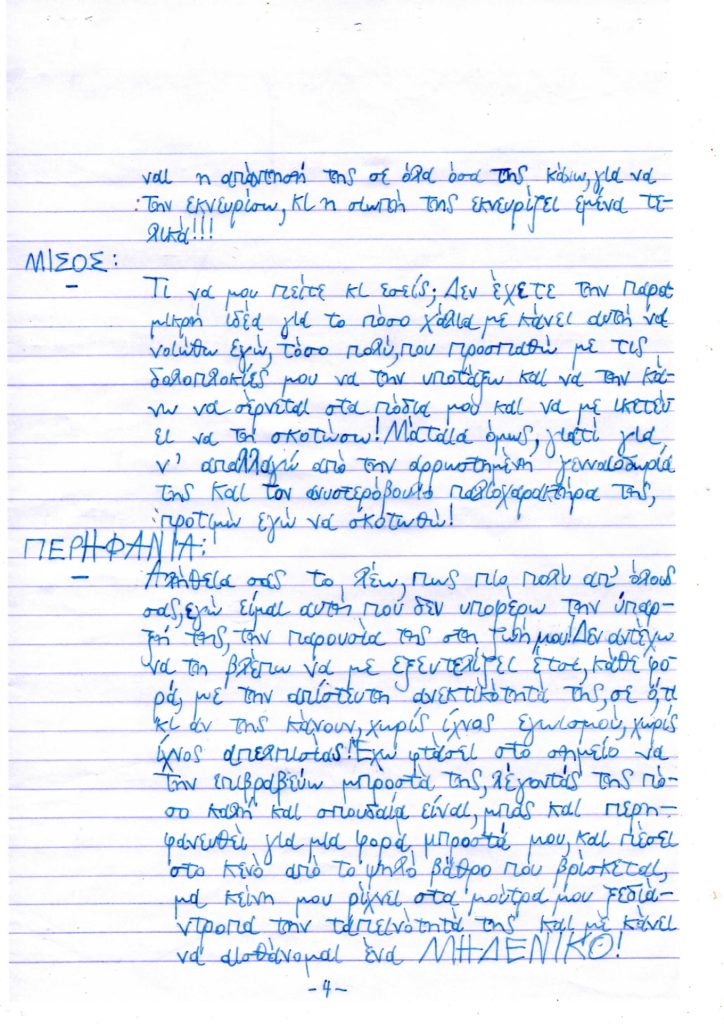 ναι η απάντησή της σε όλα όσα της κάνω, για να
την εκνευρίσω, κι η σιωπή της εκνευρίζει εμένα τε-
λικά!!!
ΜΙΣΟΣ:
-
Τι να μου πείτε κι εσείς; Δεν έχετε την παρα
μικρή ιδέα για το πόσο χάλια με κάνει αυτή να
νοιώθω εγώ, τόσο πολύ, που προσπαθώ με τις
δολοπλοκίες μου να την υποτάξω και να την κά-
νω να σέρνεται στα πόδια μου και να με ικετεύ
ει να τη σκοτώσω! Μάταια όμως, γιατί για
ν' απαλλαγώ από την αρρωστημένη γενναιοδωρία
της και τον ανυστερόβουλο παλιοχαρακτήρα της,
προτιμώ εγώ να σκοτωθώ!
ΠΕΡΗΦΑΝΙΑ:
-
Αλήθεια σας το λέω, πως πιο πολύ απ' όλους
σας, εγώ είμαι αυτή που δεν υποφέρω την ύπαρ-
ξή της, την παρουσία της στη ζωή μου! Δεν αντέχω
να τη βλέπω να με εξευτελίζει έτσι, κάθε φο-
ρά, με την απίστευτη ανεκτικότητά της, σε ό,τι
κι αν της κάνουν, χωρίς ίχνος εγωισμού, χωρίς
ίχνος απελπισίας! Έχω φτάσει στο σημείο να
την επιβραβεύω μπροστά της, λέγοντάς της πό-
σο καλή και σπουδαία είναι, μπας και περη-
φανευθεί για μια φορά μπροστά μου, και πέσει
στο κενό από το ψηλό βάθρο που βρίσκεται,
μα κείνη μου ρίχνει στα μούτρα μου ξεδιά-
ντροπα την ταπεινότητά της και με κάνει
να αισθάνομαι ένα ΜΗΔΕΝΙΚΟ!
-4-